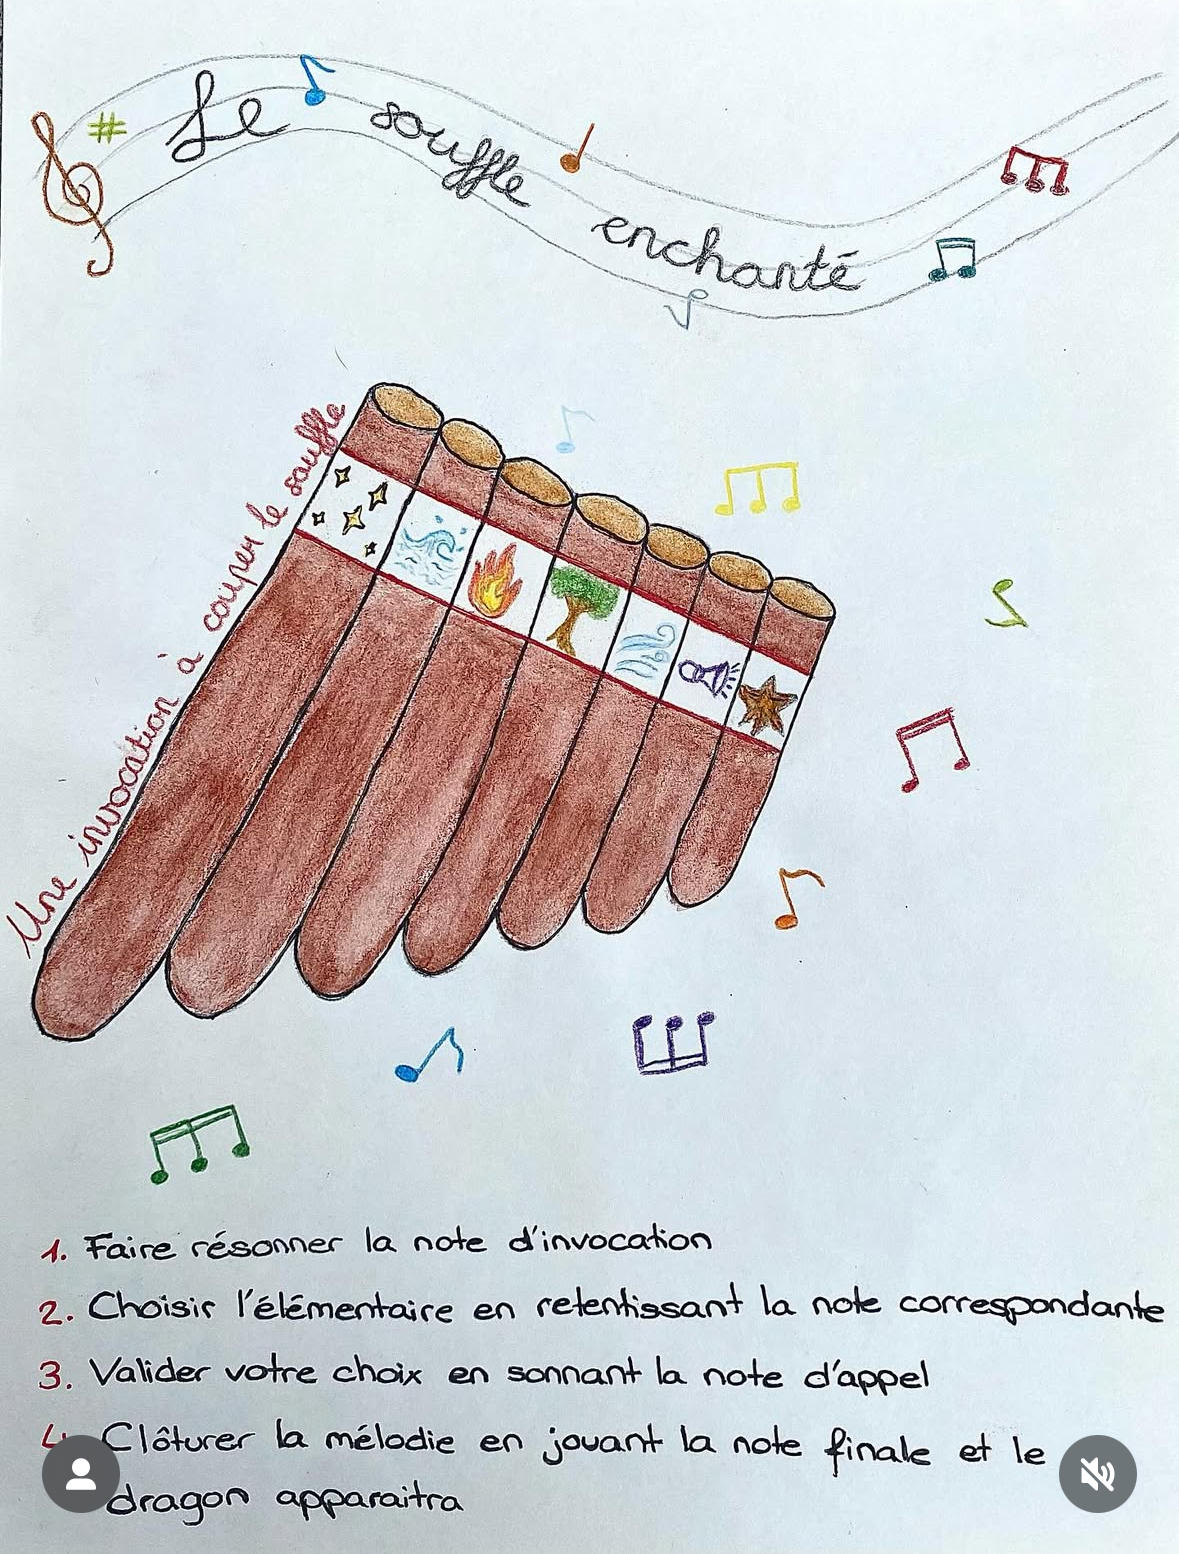 Le souffle enchanté
Une invocation à couper le souffle
1. Faire résonner la note d'invocation
2. Choisir l'élémentaire en retentissant la note correspondante
3. Valider votre choix en sonnant la note d'appel
4. Clôturer la mélodie en jouant la note finale et le
dragon apparaitra